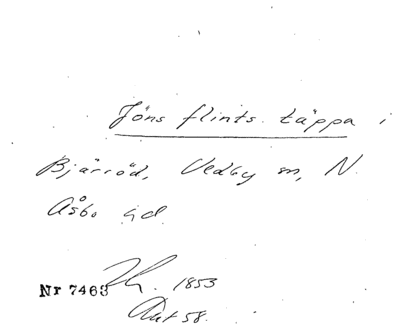 Jöns flints täppa i
Bjärröd, Vedby sn, N.
Åsbo hd.
Nr 7463 1853
Akt 58.